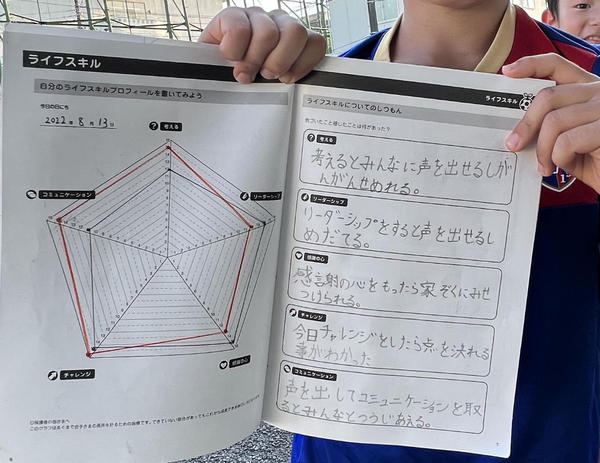 ライフスキル
自分のライフスキルプロフィールを書いてみよう
今日の日にち
2022年 8月 13日
考える
コミュニケーション
リーダーシップ
チャレンジ
感謝の心
◎保護者の皆さまへ
ライフスキル
ライフスキルについてのしつもん
気づいたこと感じたことは何があった？
考える
考えるとみんなに声を出せるしが
んがんせめれる。
リーダーシップ
リーダーシップをすると声を出せるし
めだてる。
感謝の心
感謝の心をもったら家ぞくにみせ
つけられる。
チャレンジ
今日チャレンジをしたら点を決れる
事がわかった
コミュニケーション
声を出してコミュニケーションを取
るとみんなとつうじあえる。